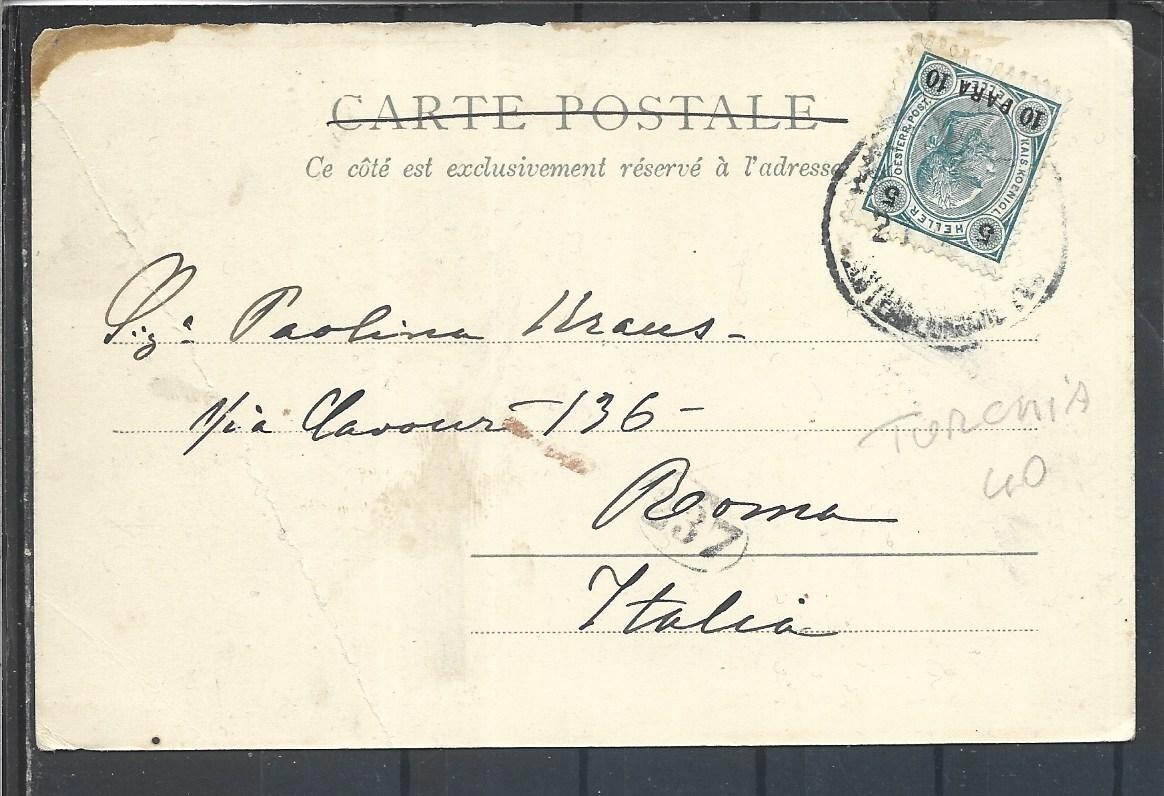 CARTE POSTALE
Ce côté est exclusivement réservé à l'adresse
10 PARA 10
KAIS. KOENIGL. OESTERR. POST.
5 HELLER 5
2
Sig.a Paolina Kraus -
Via Cavour 136 -
Roma
Italia
137
TURCHIA
40